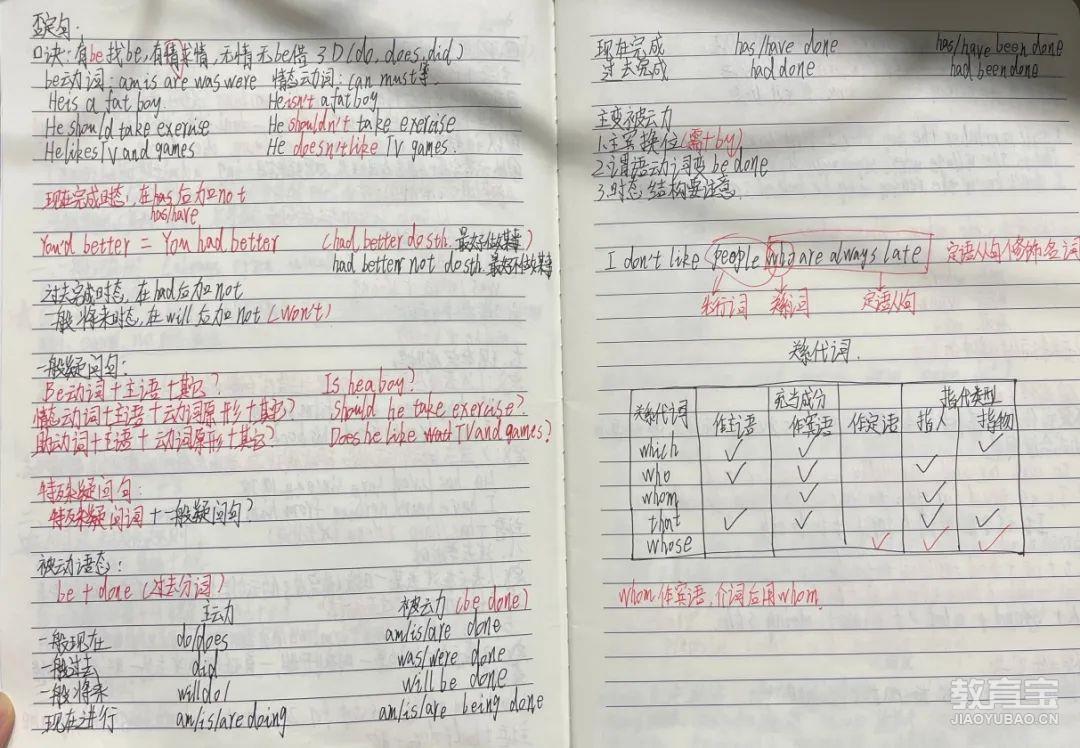 否定句:
口诀:有be找be,有情求情,无情无be借3D(do,does,did)
be动词:am is are was were 情态动词:can must等.
He is a fat boy. He isn't a fat boy
He should take exercise He shouldn't take exercise
He likes TV and games He doesn't like TV games.
现在完成时态,在has后加not
has/have
You'd better = You had better (had better do sth.最好做某事)
had better not do sth.最好不做某事
过去完成时态,在had后加not
一般将来时态,在will后加not (won't)
一般疑问句:
Be动词+主语+其它? Is he a boy?
情态动词+主语+动词原形+其它? Should he take exercise?
助动词+主语+动词原形+其它? Does he like watch TV and games?
特殊疑问句:
特殊疑问词+一般疑问句?
被动语态:
be + done (过去分词)
主动 被动 (be done)
一般现在 do/does am/is/are done
一般过去 did was/were done
一般将来 will do/ will be done
现在进行 am/is/are doing am/is/are being done
现在完成 has/have done has/have been done
过去完成 had done had been done
主变被动
1.主宾换位(需+by)
2.谓语动词变be done
3.时态,结构要注意.
I don't like people who are always late 定语从句修饰名词
先行词 关系词 定语从句
关系代词.
关系代词 充当成分 指代类型
作主语 作宾语 作定语 指人 指物
which ✓ ✓ ✓
who ✓ ✓ ✓
whom ✓ ✓
that ✓ ✓ ✓ ✓
whose ✓ ✓ ✓
whom作宾语,介词后用whom.
教育宝
JIAOYUBAO.CN